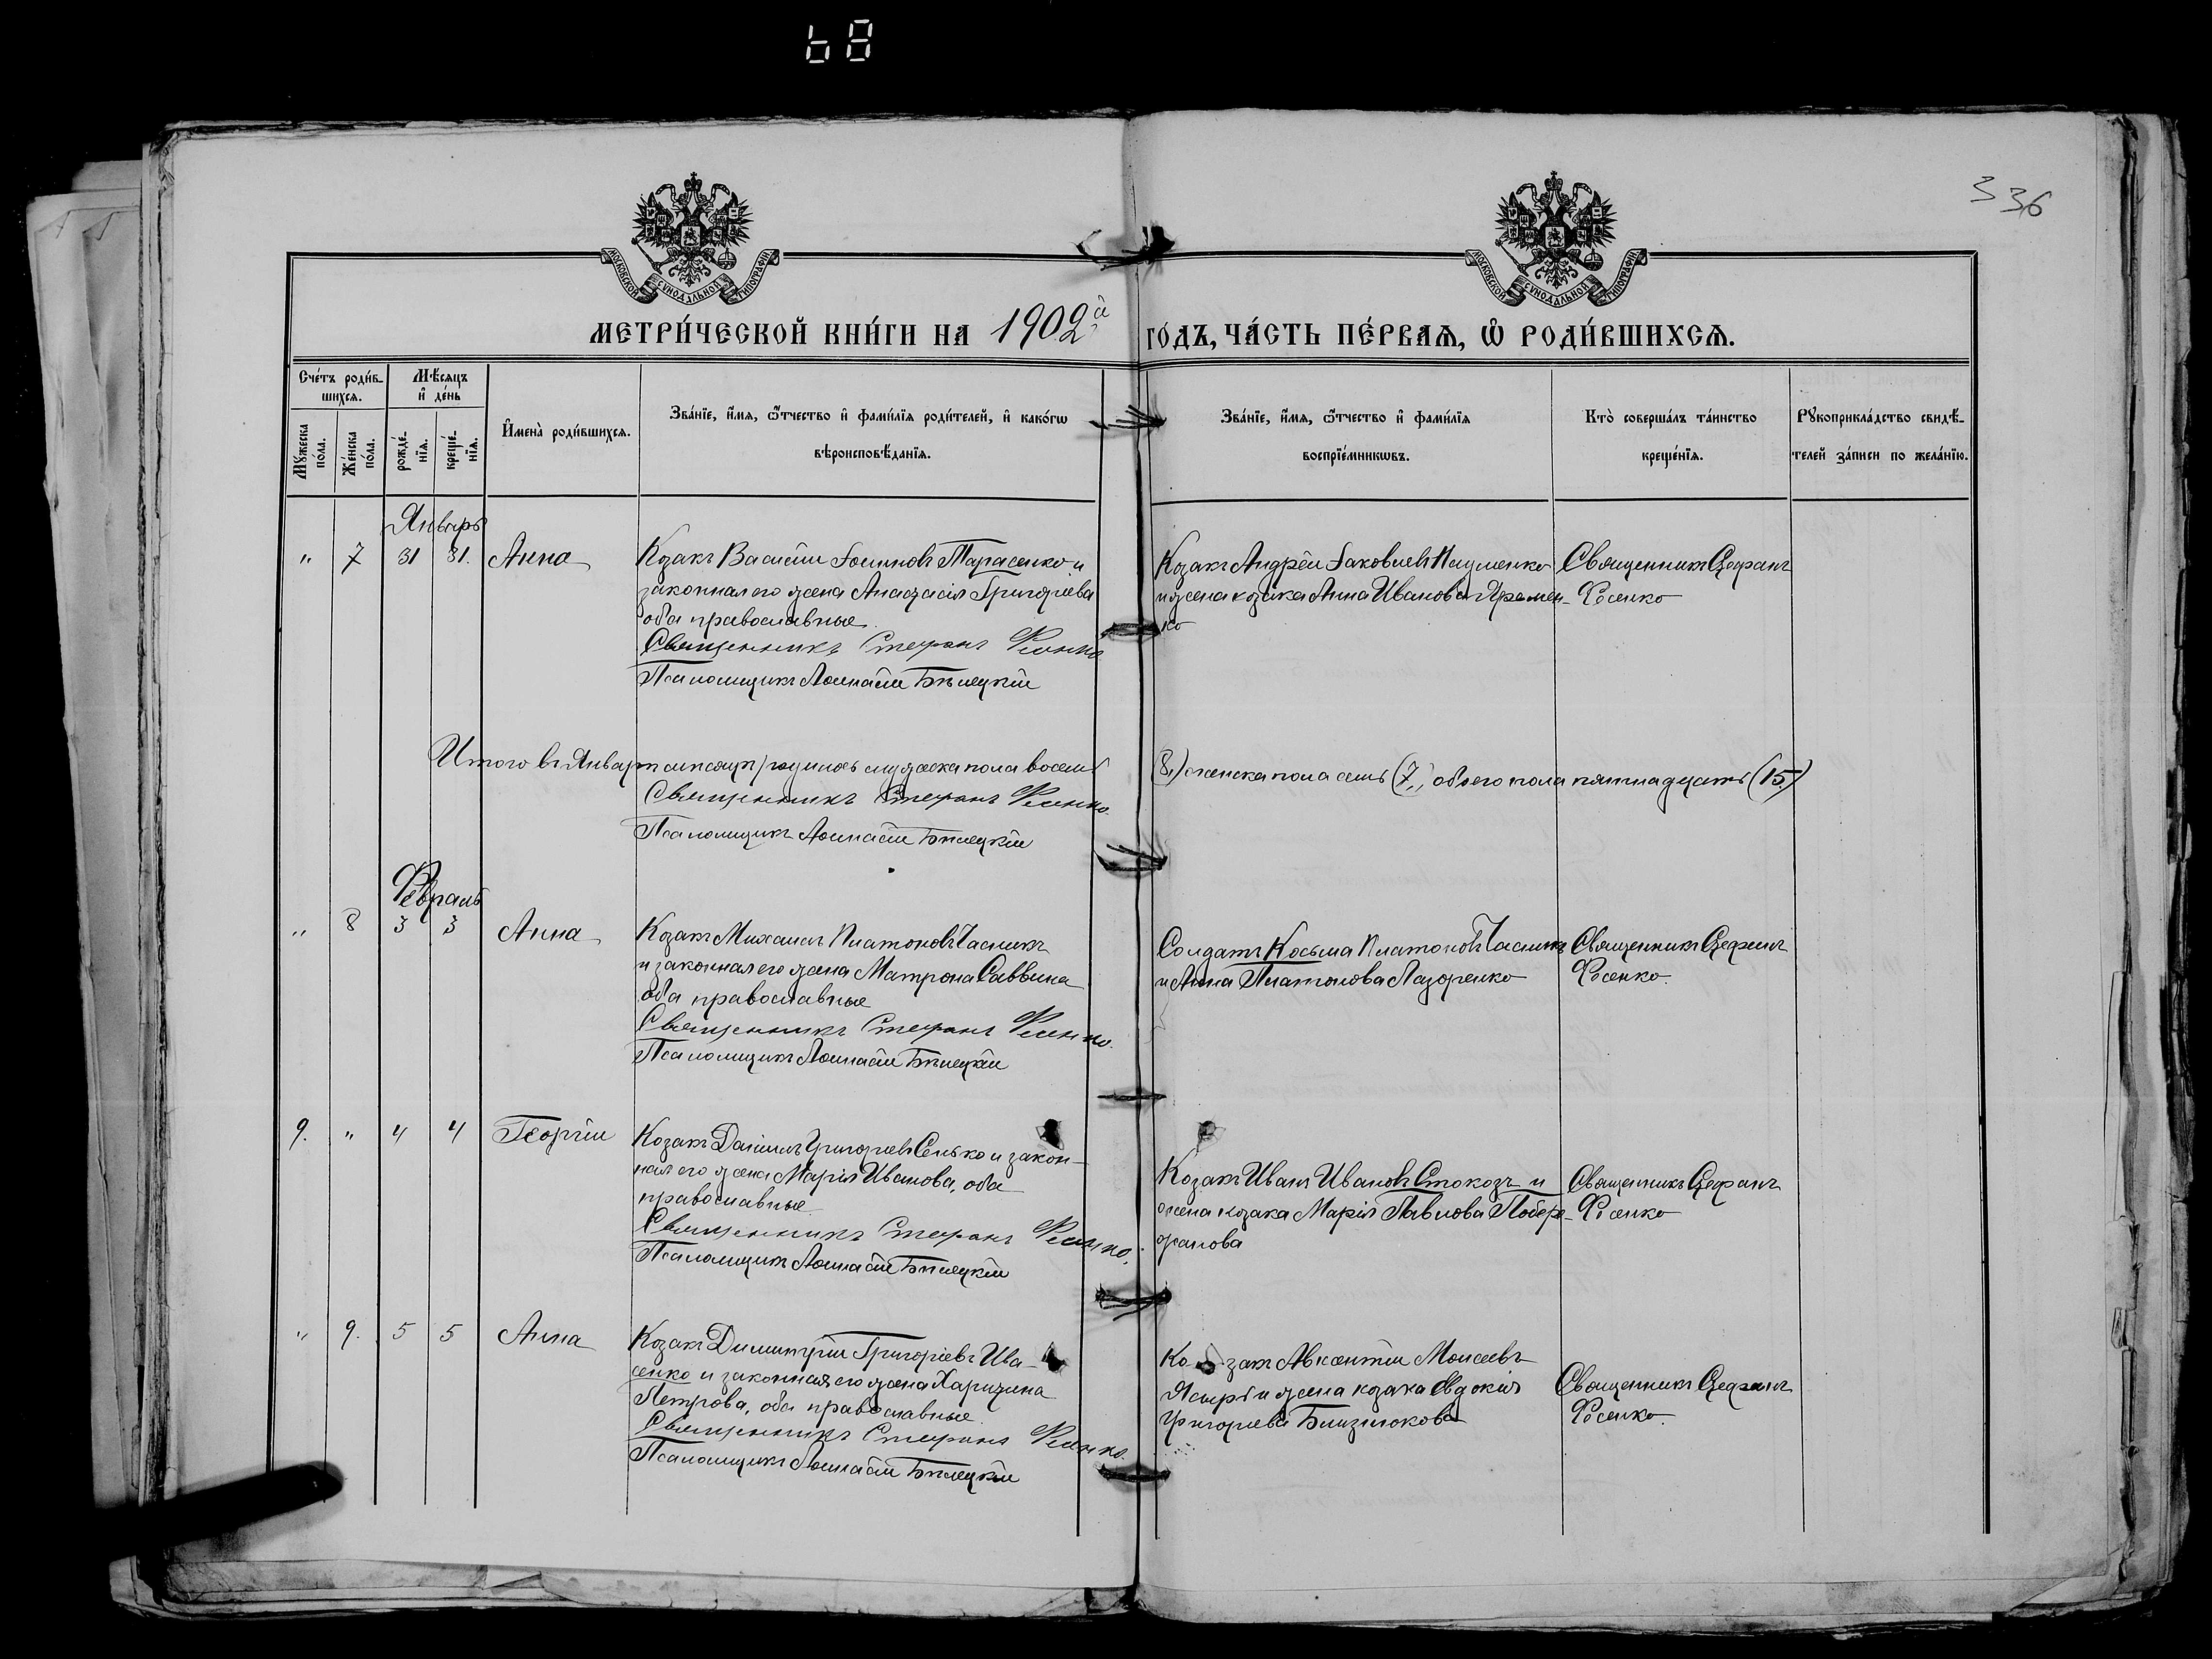 68
336
МОСКОВСКОЙ СУНОДАЛЬНОЙ ТИПОГРАФІИ
МОСКОВСКОЙ СУНОДАЛЬНОЙ ТИПОГРАФІИ
МЕТРИ́ЧЕСКОЙ КНИ́ГИ НА 1902й ГО́ДЪ, ЧА́СТЬ ПЕ́РВАѦ, Ѽ РОДИ́ВШИХСѦ.
Сче́тъ роди́в-
шихсѧ.
Мꙋжеска по́ла.
Же́нска по́ла.
Мѣ́сѧцъ и҆ де́нь
рожде́-нїѧ.
креще́-нїѧ.
И҆мена̀ роди́вшихсѧ.
Зва́нїе, и҆́мѧ, ѻ҆́тчество и҆ фами́лїѧ роди́телей, и҆ како́гѡ
вѣроисповѣ́данїѧ.
Зва́нїе, и҆́мѧ, ѻ҆́тчество и҆ фами́лїѧ
воспрїе́мникѡвъ.
Кто̀ соверша́лъ та́инство
креще́нїѧ.
Рꙋкоприкла́дство свидѣ́-
телей за́писи по жела́нїю.
Январь
" 7 31 31. Анна
Козакъ Василій Іоинновъ Тарасенко и
законная его жена Анастасія Григоріева
оба православные
Священникъ Стефанъ Ѳесенко
Псаломщикъ Аѳанасій Бѣлецкій
Козакъ Андрей Іаковлевъ Науменко
и жена козака Анна Иванова Яремен-
ко
Священникъ Стефанъ
Ѳесенко
Итого въ Январѣ мѣсяцѣ родилось мужеска пола восемь (8,) женска пола семь (7,) обоего пола пятнадцать (15.)
Священникъ Стефанъ Ѳесенко.
Псаломщикъ Аѳанасій Бѣлецкій
Февраль
" 8 3 3 Анна
Козакъ Михаилъ Платоновъ Часникъ
и законная его жена Матрона Саввина
оба православные
Священникъ Стефанъ Ѳесенко.
Псаломщикъ Аѳанасій Бѣлецкій
Солдатъ Косьма Платоновъ Часникъ
и Анна Платонова Лазоренко
Священникъ Стефанъ
Ѳесенко.
9. " 4 4 Георгій
Козакъ Даніилъ Григорьевъ Сенько и закон-
ная его жена Марія Иванова, оба
православные
Священникъ Стефанъ Ѳесенко.
Псаломщикъ Аѳанасій Бѣлецкій
Козакъ Иванъ Ивановъ Стокозъ и
жена козака Марія Павлова Побере-
жанова
Священникъ Стефанъ
Ѳесенко
" 9. 5 5 Анна
Козакъ Димитрій Григоріевъ Ива-
сенко и законная его жена Харитина
Петрова, оба православные
Священникъ Стефанъ Ѳесенко.
Псаломщикъ Аѳанасій Бѣлецкій
Козакъ Авксентій Моисеевъ
и жена козака Евдокія
Григорьева Близнюкова
Священникъ Стефанъ
Ѳесенко.